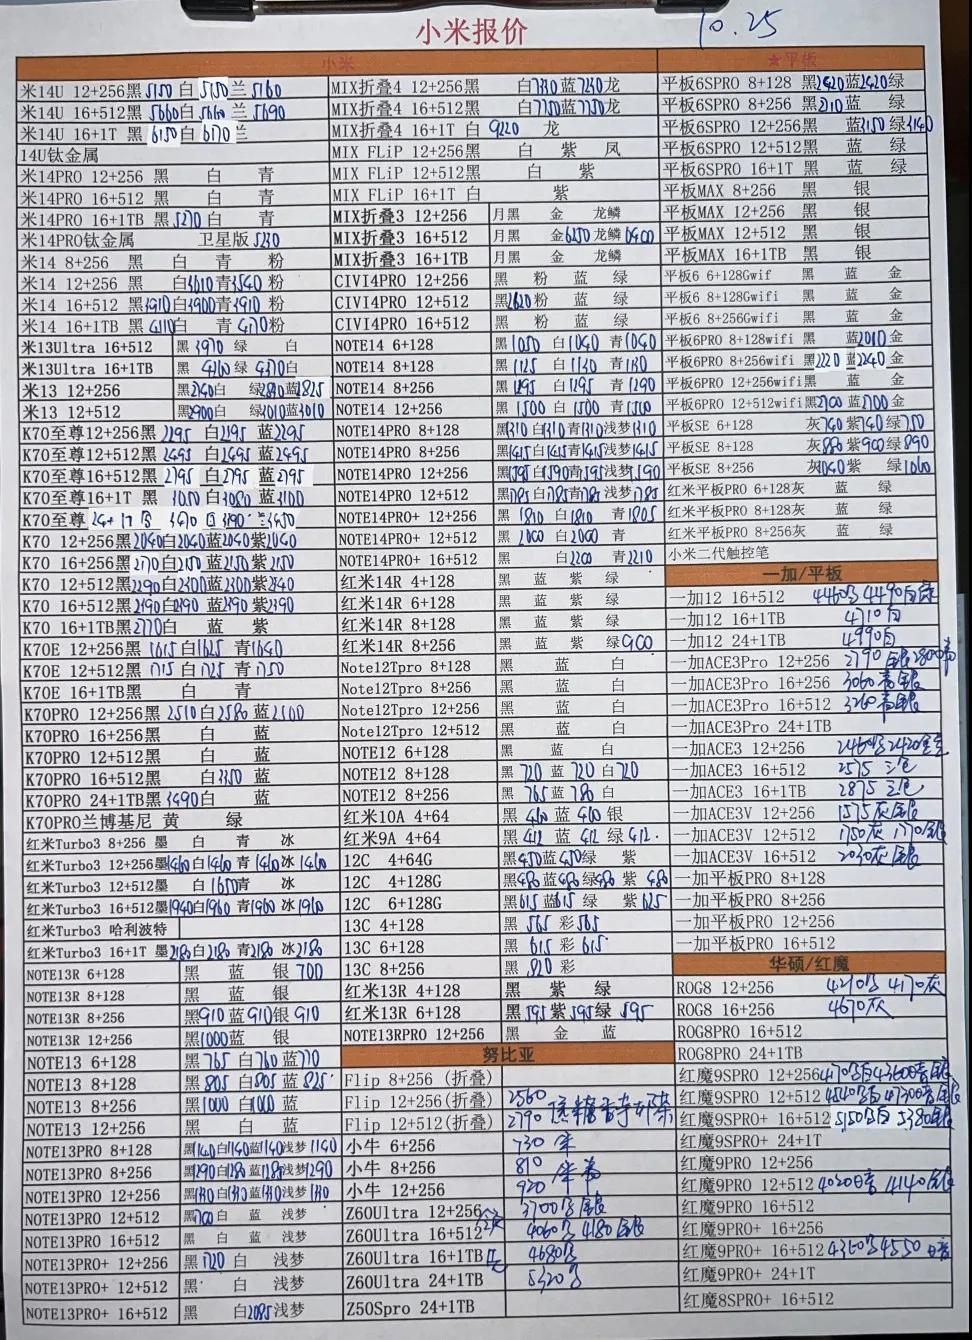 小米报价
10.25
小米
米14U 12+256黑5150 白5150兰5160
米14U 16+512黑5660白5660兰5690
米14U 16+1T 黑6150白6170兰
14U钛金属
米14PRO 12+256 黑 白 青
米14PRO 16+512 黑 白 青
米14PRO 16+1TB 黑5270白 青
米14PRO钛金属 卫星版5230
米14 8+256 黑 白 青 粉
米14 12+256 黑 白3610青3540粉
米14 16+512 黑3910白3900青3910粉
米14 16+1TB 黑4110白 青4170粉
米13Ultra 16+512 黑3970 绿 白
米13Ultra 16+1TB 黑4260绿4270白
米13 12+256 黑2740白 绿2810蓝2825
米13 12+512 黑2900白 绿3010蓝3010
K70至尊12+256黑2295 白2195 蓝2295
K70至尊12+512黑2495 白2495 蓝2495
K70至尊16+512黑2795 白2795 蓝2795
K70至尊16+1T 黑3050白3080蓝3100
K70至尊
K70 12+256黑2040白2040蓝2040紫2040
K70 16+256黑2170白2150蓝2150紫2150
K70 12+512黑2290白2300蓝2300紫2340
K70 16+512黑2390白2390蓝2390紫2390
K70 16+1TB黑2770白 蓝 紫
K70E 12+256黑1615白1625 青1640
K70E 12+512黑1715白1725 青1750
K70E 16+1TB黑 白 青
K70PRO 12+256黑2510白2580蓝2500
K70PRO 16+256黑 白 蓝
K70PRO 12+512黑 白 蓝
K70PRO 16+512黑 白3350蓝
K70PRO 24+1TB黑3490白 蓝
K70PRO兰博基尼 黄 绿
红米Turbo3 8+256 墨 白 青 冰
红米Turbo3 12+256墨1460白1460青1460冰1460
红米Turbo3 12+512墨 白1650青 冰
红米Turbo3 16+512墨1940白1960青1960冰1960
红米Turbo3 哈利波特
红米Turbo3 16+1T 墨2180白2180青2180冰2180
NOTE13R 6+128 黑 蓝 银700
NOTE13R 8+128 黑 蓝 银
NOTE13R 8+256 黑910蓝910银910
NOTE13R 12+256 黑1000蓝 银
NOTE13 6+128 黑765 白760蓝770
NOTE13 8+128 黑805 白805蓝825
NOTE13 8+256 黑1000白1000蓝
NOTE13 12+256 黑 白 蓝
NOTE13PRO 8+128 黑1140白1140蓝1140浅梦1140
NOTE13PRO 8+256 黑1290白1280蓝1285浅梦1290
NOTE13PRO 12+256 黑1310白1310蓝1310浅梦1310
NOTE13PRO 12+512 黑1700白 蓝 浅梦
NOTE13PRO 16+512 黑 白 蓝 浅梦
NOTE13PRO+ 12+256 黑1720白 浅梦
NOTE13PRO+ 12+512 黑 白 浅梦
NOTE13PRO+ 16+512 黑 白2085浅梦
MIX折叠4 12+256黑 白7310蓝7230龙
MIX折叠4 16+512黑 白7750蓝7750龙
MIX折叠4 16+1T 白9220 龙
MIX FLiP 12+256黑 白 紫 凤
MIX FLiP 12+512黑 白 紫
MIX FLiP 16+1T 白 紫
MIX折叠3 12+256 月黑 金 龙鳞
MIX折叠3 16+512 月黑 金6250龙鳞6400
MIX折叠3 16+1TB 月黑 金 龙鳞
CIVI4PRO 12+256 黑 粉 蓝 绿
CIVI4PRO 12+512 黑2620粉 蓝 绿
CIVI4PRO 16+512 黑 粉 蓝 绿
NOTE14 6+128 黑1050 白1040 青1040
NOTE14 8+128 黑1125 白1130 青1130
NOTE14 8+256 黑1295 白1295 青1290
NOTE14 12+256 黑1500 白1500 青1500
NOTE14PRO 8+128 黑1310白1310青1310浅梦1310
NOTE14PRO 8+256 黑1415白1415青1415浅梦1415
NOTE14PRO 12+256 黑1595白1590青1595浅梦1590
NOTE14PRO 12+512 黑1785白1785青1785浅梦1785
NOTE14PRO+ 12+256 黑1810 白1810 青1805
NOTE14PRO+ 12+512 黑2000 白2000 青
NOTE14PRO+ 16+512 黑 白2200 青2210
红米14R 4+128 黑 蓝 紫 绿
红米14R 6+128 黑 蓝 紫 绿
红米14R 8+128 黑 蓝 紫 绿
红米14R 8+256 黑 蓝 紫 绿900
Note12Tpro 8+128 黑 蓝 白
Note12Tpro 8+256 黑 蓝 白
Note12Tpro 12+256 黑 蓝 白
Note12Tpro 12+512 黑 蓝 白
NOTE12 6+128 黑 蓝 白
NOTE12 8+128 黑720 蓝720白720
NOTE12 8+256 黑765蓝780白
红米10A 4+64 黑460蓝460银
红米9A 4+64 黑412 蓝412绿412
12C 4+64G 黑450蓝450绿 紫
12C 4+128G 黑480蓝480绿480紫480
12C 6+128G 黑615蓝615绿 紫625
13C 4+128 黑565 彩565
13C 6+128 黑615 彩615
13C 8+256 黑820 彩
红米13R 4+128 黑 紫 绿
红米13R 6+128 黑595紫595绿595
NOTE13RPRO 12+256 黑 金 蓝
努比亚
Flip 8+256 (折叠)
Flip 12+256(折叠) 2560
Flip 12+512(折叠) 2790
小牛 6+256 730
小牛 8+256 810
小牛 12+256 920
Z60Ultra 12+256 3700
Z60Ultra 16+512 4060 4180
Z60Ultra 16+1TB 4680
Z60Ultra 24+1TB 5320
Z50Spro 24+1TB
★平板
平板6SPRO 8+128 黑2420蓝2420绿
平板6SPRO 8+256 黑2710蓝 绿
平板6SPRO 12+256黑 蓝3150绿3140
平板6SPRO 12+512黑 蓝 绿
平板6SPRO 16+1T黑 蓝 绿
平板MAX 8+256 黑 银
平板MAX 12+256 黑 银
平板MAX 12+512 黑 银
平板MAX 16+1TB 黑 银
平板6 6+128Gwif 黑 蓝 金
平板6 8+128Gwifi 黑 蓝 金
平板6 8+256Gwifi 黑 蓝 金
平板6PRO 8+128wifi 黑 蓝2010金
平板6PRO 8+256wifi 黑2220 蓝2240金
平板6PRO 12+256wifi黑 蓝 金
平板6PRO 12+512wifi黑2700蓝2700金
平板SE 6+128 灰740紫740绿750
平板SE 8+128 灰880紫900绿890
平板SE 8+256 灰1040紫 绿1060
红米平板PRO 6+128灰 蓝 绿
红米平板PRO 8+128灰 蓝 绿
红米平板PRO 8+256灰 蓝 绿
小米二代触控笔
一加/平板
一加12 16+512 4460 4490白绿
一加12 16+1TB 4710白
一加12 24+1TB 4990白
一加ACE3Pro 12+256 2790
一加ACE3Pro 16+256 3060
一加ACE3Pro 16+512 3260
一加ACE3Pro 24+1TB
一加ACE3 12+256 2460 2420
一加ACE3 16+512 2575 三色
一加ACE3 16+1TB 2875 三色
一加ACE3V 12+256 1575灰
一加ACE3V 12+512 1750灰 1770
一加ACE3V 16+512 2030灰
一加平板PRO 8+128
一加平板PRO 8+256
一加平板PRO 12+256
一加平板PRO 16+512
华硕/红魔
ROG8 12+256 4210 4170灰
ROG8 16+256 4670灰
ROG8PRO 16+512
ROG8PRO 24+1TB
红魔9SPRO 12+256 4170
红魔9SPRO 12+512 4540
红魔9SPRO+ 16+512 5150 5380
红魔9SPRO+ 24+1T
红魔9PRO 12+256
红魔9PRO 12+512 4020 4140
红魔9PRO 16+512
红魔9PRO+ 16+256
红魔9PRO+ 16+512 4360 4550
红魔9PRO+ 24+1T
红魔8SPRO+ 16+512